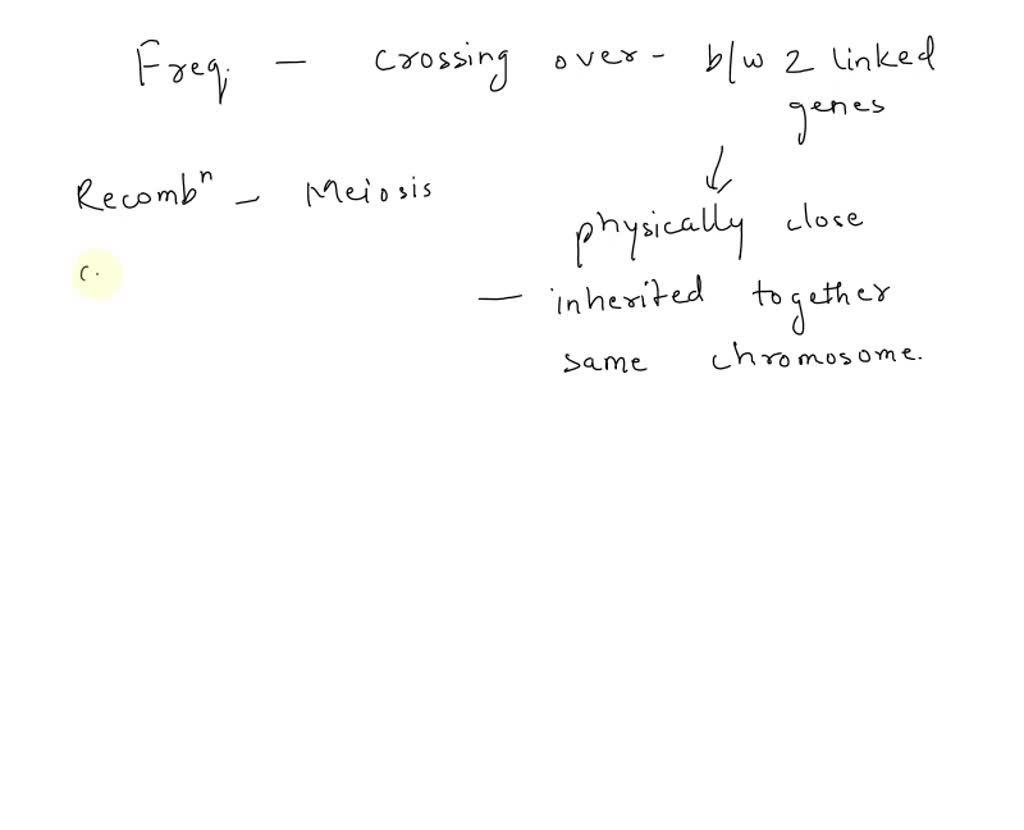 Freq. - crossing over - b/w 2 linked
genes
Recombⁿ - Meiosis
physically close
c.
- inherited together
same chromosome.